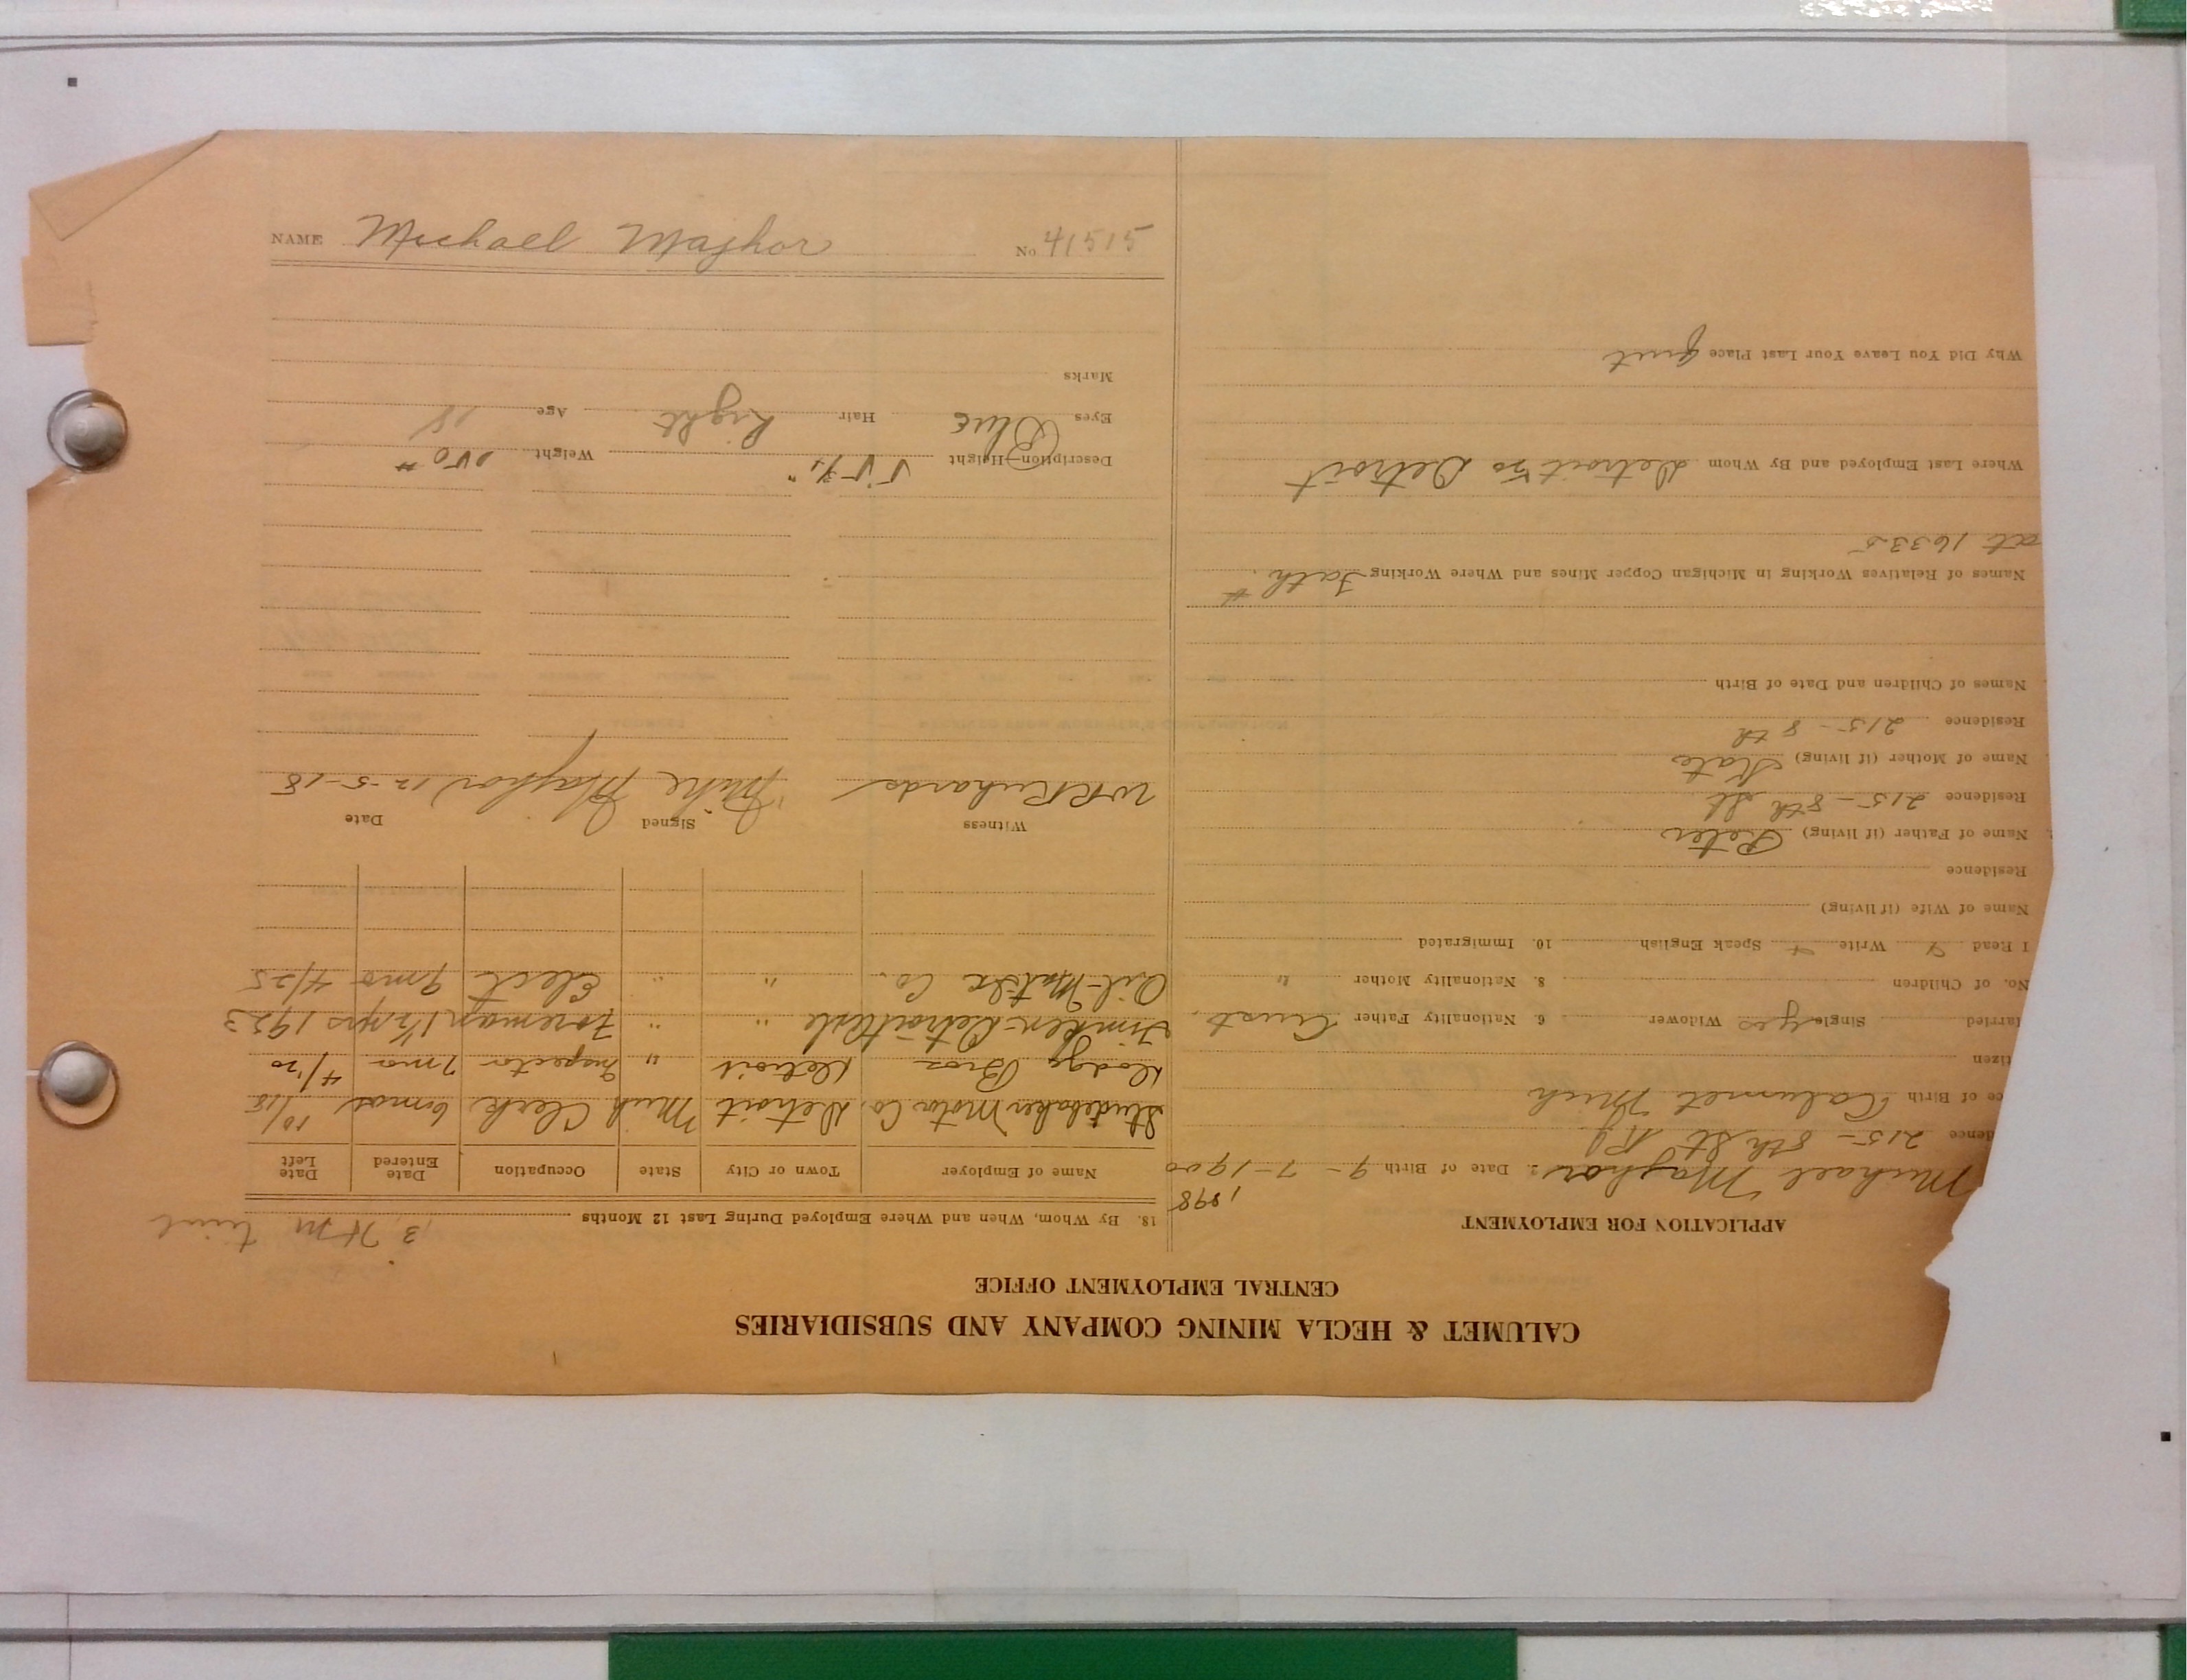 CALUMET & HECLA MINING COMPANY AND SUBSIDIARIES
CENTRAL EMPLOYMENT OFFICE
APPLICATION FOR EMPLOYMENT
1898
Michael Majhor 2. Date of Birth 9-7-1900
dence 215-8th St
ce of Birth Calumet Mich
tizen
arried Single yes Widower 6. Nationality Father Aust.
No. of Children 8. Nationality Mother "
I Read Write Speak English 10. Immigrated
Name of Wife (if living)
Residence
Name of Father (if living) Peter
Residence 215-8th St
Name of Mother (if living) Kate
Residence 215-8th
Names of Children and Date of Birth
Names of Relatives Working in Michigan Copper Mines and Where Working Fath. #
at 16335
Where Last Employed and By Whom Detroit to Detroit
Why Did You Leave Your Last Place quit
3, H M
18. By Whom, When and Where Employed During Last 12 Months
Name of Employer Town or City State Occupation Date Entered Date Left
Studebaker Motor Co. Detroit Mich Clerk 6 mos 10/18
Dodge Bros Detroit " Inspector 7 mo 4/20
Timken-Detroit Axle " " Foreman 1½ yrs 1923
" " Elect 9 mo 4/25
Witness Signed Date
WR Richards Mike Majhor 12-5-18
Description—Height 5' Weight
Eyes Blue Hair Light Age 18
Marks
NAME Michael Majhor No 41515